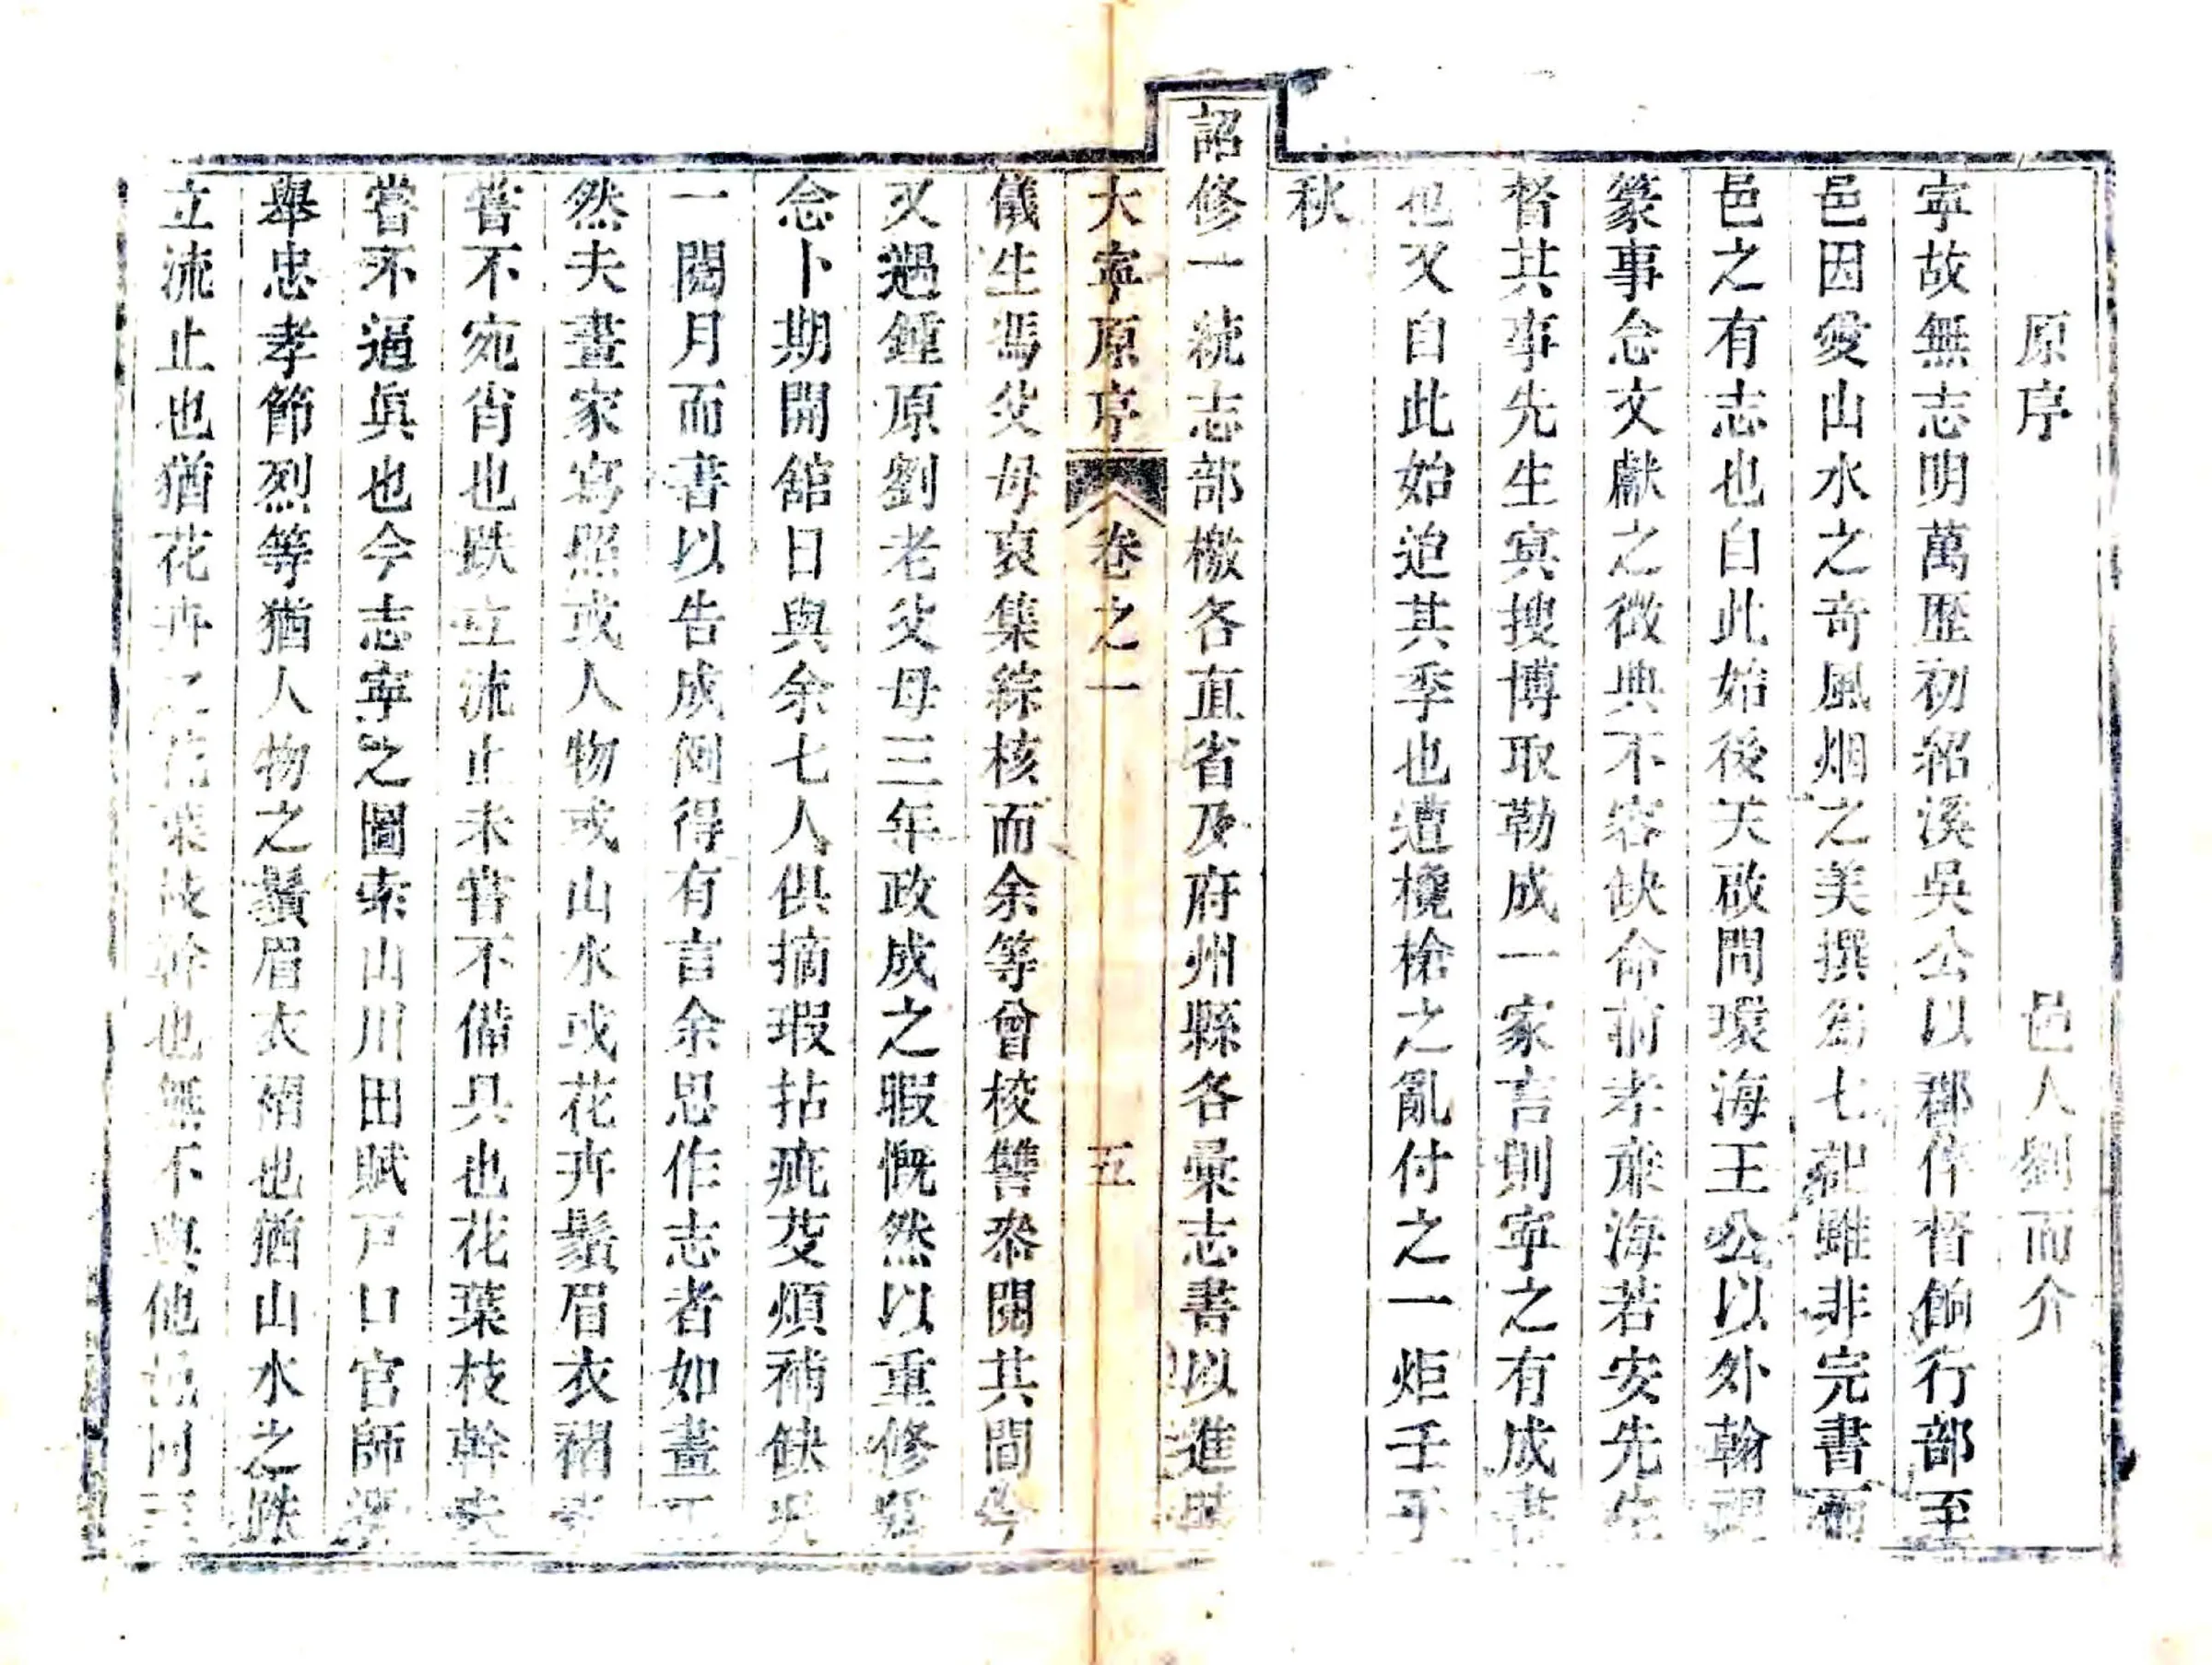 原序 邑人劉而介
寧故無志明萬歷初紹溪吳公以郡倅督餉行部至
邑因愛山水之奇風烟之美撰為七紀雖非完書而
邑之有志也自此始後天啟間環海王公以外翰視
篆事念文獻之微典不容缺命前孝廉海若安先生
督其事先生冥搜博取勒成一家言則寧之有成書
也又自此始迨其季也遭欃槍之亂付之一炬壬子
秋
詔修一統志部檄各直省及府州縣各彙志書以進
大寧原序 卷之一 五
儀生馮父母裒集綜核而余等曾校讐叅閱其間今
又遇鍾原劉老父母三年政成之暇慨然以重修
念卜期開館日與余七人俱摘瑕拈疵芟煩補缺
一閱月而書以告成例得有言余思作志者如畫
然夫畫家寫照或人物或山水或花卉鬚眉衣褶
嘗不宛肖也跌立流止未嘗不備具也花葉枝幹
嘗不逼眞也今志寧之圖索山川田賦戸口官師
舉忠孝節烈等猶人物之鬚眉衣褶也猶山水之跌
立流止也猶花卉之花葉枝幹也無不與他